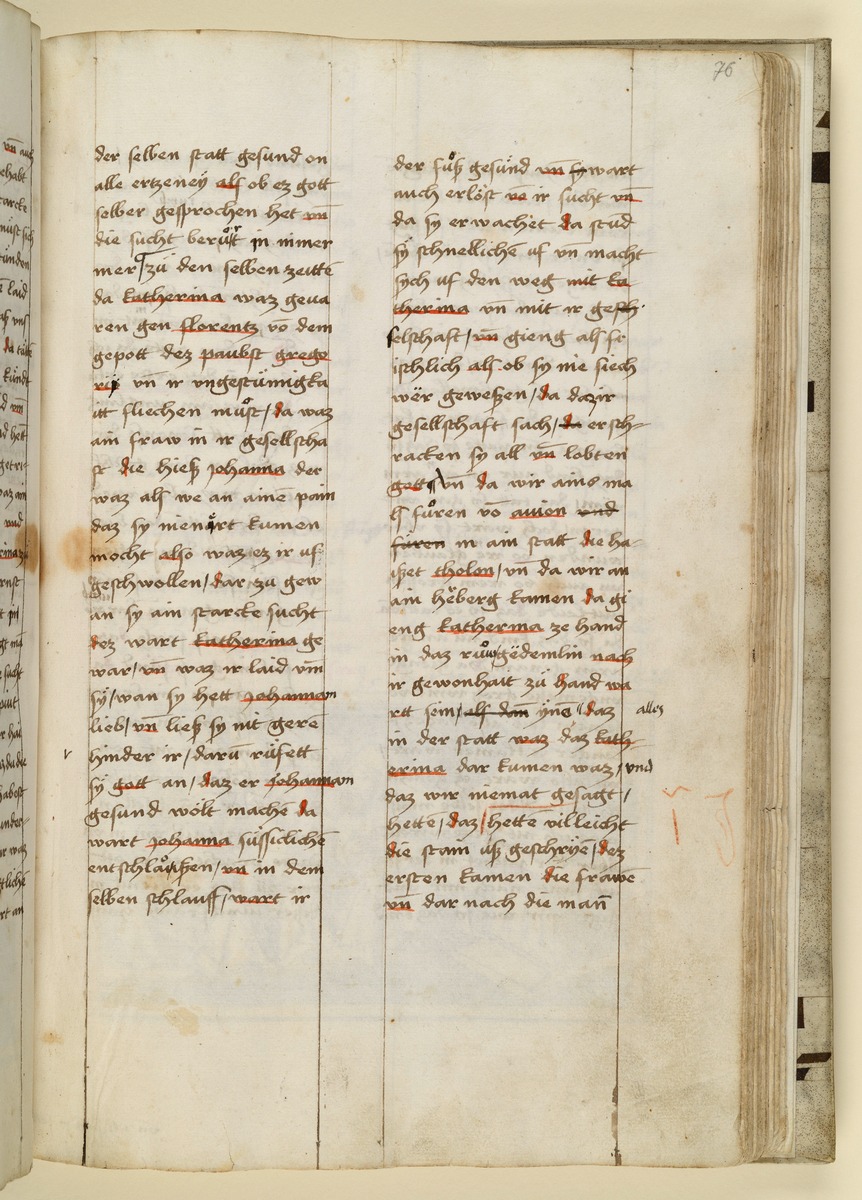 76
der selben statt gesund on
alle ertzeneÿ als ob ez gott
selber gesprochen het vn̄
die sucht berůrt jn nimer
mer / zů den selben zeittē
da katherina waz geua
ren gen florentz vō dem
gepott dez paubst grego
rij vn̄ ir vngestümigka
itt fliechen můst / da waz
ain fraw in ir gesellscha
ft die hieß johanna der
waz als we an ainē pain
daz sy nienårt kumen
mocht also waz ez ir uf
geschwollen / dar zu gew
an sy ain starcke sucht
dez wart katherina ge
war / vn̄ waz ir laid vm̄
sÿ / wan sy hett johannam
lieb / vn̄ ließ sy nit gerē
hinder ir / darū rüfett
sÿ gott an / daz er johannam
gesund wölt machē da
wart johanna süssiclichē
entschlauffen / vn̄ in dem
selben schlauff / wart ir
der fůß gesund vn̄ sy wart
auch erlöst vō ir sucht vn̄
da sy erwachet da stůd
sÿ schnellichē uf vn̄ macht
sych uf den weg mit ka
therina vn̄ mit ir gesch
selschaft / vn̄ gieng als fr
ischlich als ob sy nie siech
wër geweßen / da daz ir
gesellschaft sach / da ersch-
racken sy all vn̄ lobten
gott / vn̄ da wir ains ma
ls fůren vō auion vnd
füren in ain statt die ha-
ißet tholon / vn̄ da wir an
ain hëberg kamen da gi
eng katherina ze hand
in daz růw gëdemlin nach
ir gewonhait zů hand wa
rtt sein / als dan ynē daz alles
in der statt waz daz kath-
erina dar kumen waz / vnd
daz wir niemat gesagt /
hette / daz / hette villeicht
die stain uß geschrÿe / dez
ersten kamen die frawē
vn̄ dar nach die man̄